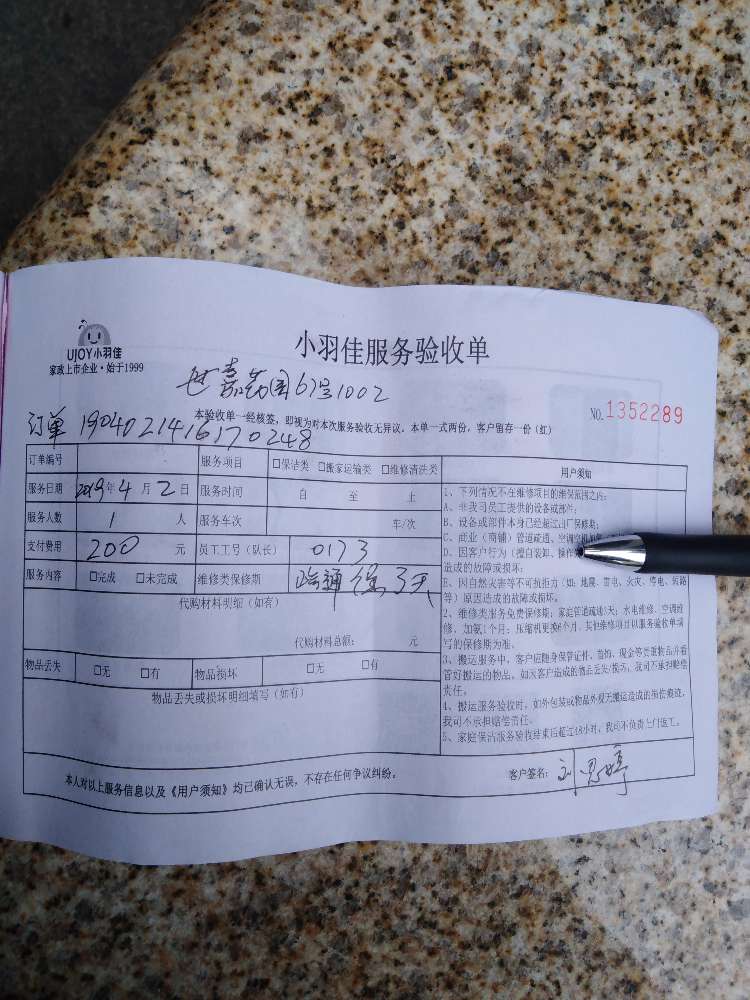 UJOY小羽佳
家政上市企业·始于1999
小羽佳服务验收单
世嘉苑 67号1002
NO.1352289
本验收单一经核签，即视为对本次服务验收无异议。本单一式两份，客户留存一份（红）
订单 190402141617 0248
订单编号 服务项目 □保洁类 □搬家运输类 □维修清洗类
服务日期 2019年4月2日 服务时间 自 至 止
服务人数 1 人 服务车次 车/次
支付费用 200 元 员工工号（队长） 0173
服务内容 □完成 □未完成 维修类保修期 疏通 保3天
代购材料明细（如有）
代购材料总额： 元
物品丢失 □无 □有 物品损坏 □无 □有
物品丢失或损坏明细填写（如有）
用户须知
1、下列情况不在维修项目的维保范围之内：
A、非我司员工提供的设备或部件；
B、设备或部件本身已经超过出厂保修期；
C、商业（商铺）管道疏通、空调
D、因客户行为（擅自装卸、操作
造成的故障或损坏；
E、因自然灾害等不可抗拒力（如：地震、雷电、火灾、停电、短路
等）原因造成的故障或损坏。
2、维修类服务免费保修期：家庭管道疏通3天；水电维修、空调维
修、加氨1个月；压缩机更换6个月，其他维修项目以服务验收单填
写的保修期为准。
3、搬运服务中，客户应随身保管证件、首饰、现金等贵重物品并看
管好搬运的物品。如因客户造成的物品丢失/损坏，我司不承担赔偿
责任。
4、搬运服务验收时，如外包装或物品外观无搬运造成的损伤痕迹，
我司不承担赔偿责任。
5、家庭保洁服务验收结束后超过48小时，我司不负责上门返工。
本人对以上服务信息以及《用户须知》均已确认无误，不存在任何争议纠纷。
客户签名：刘思婷